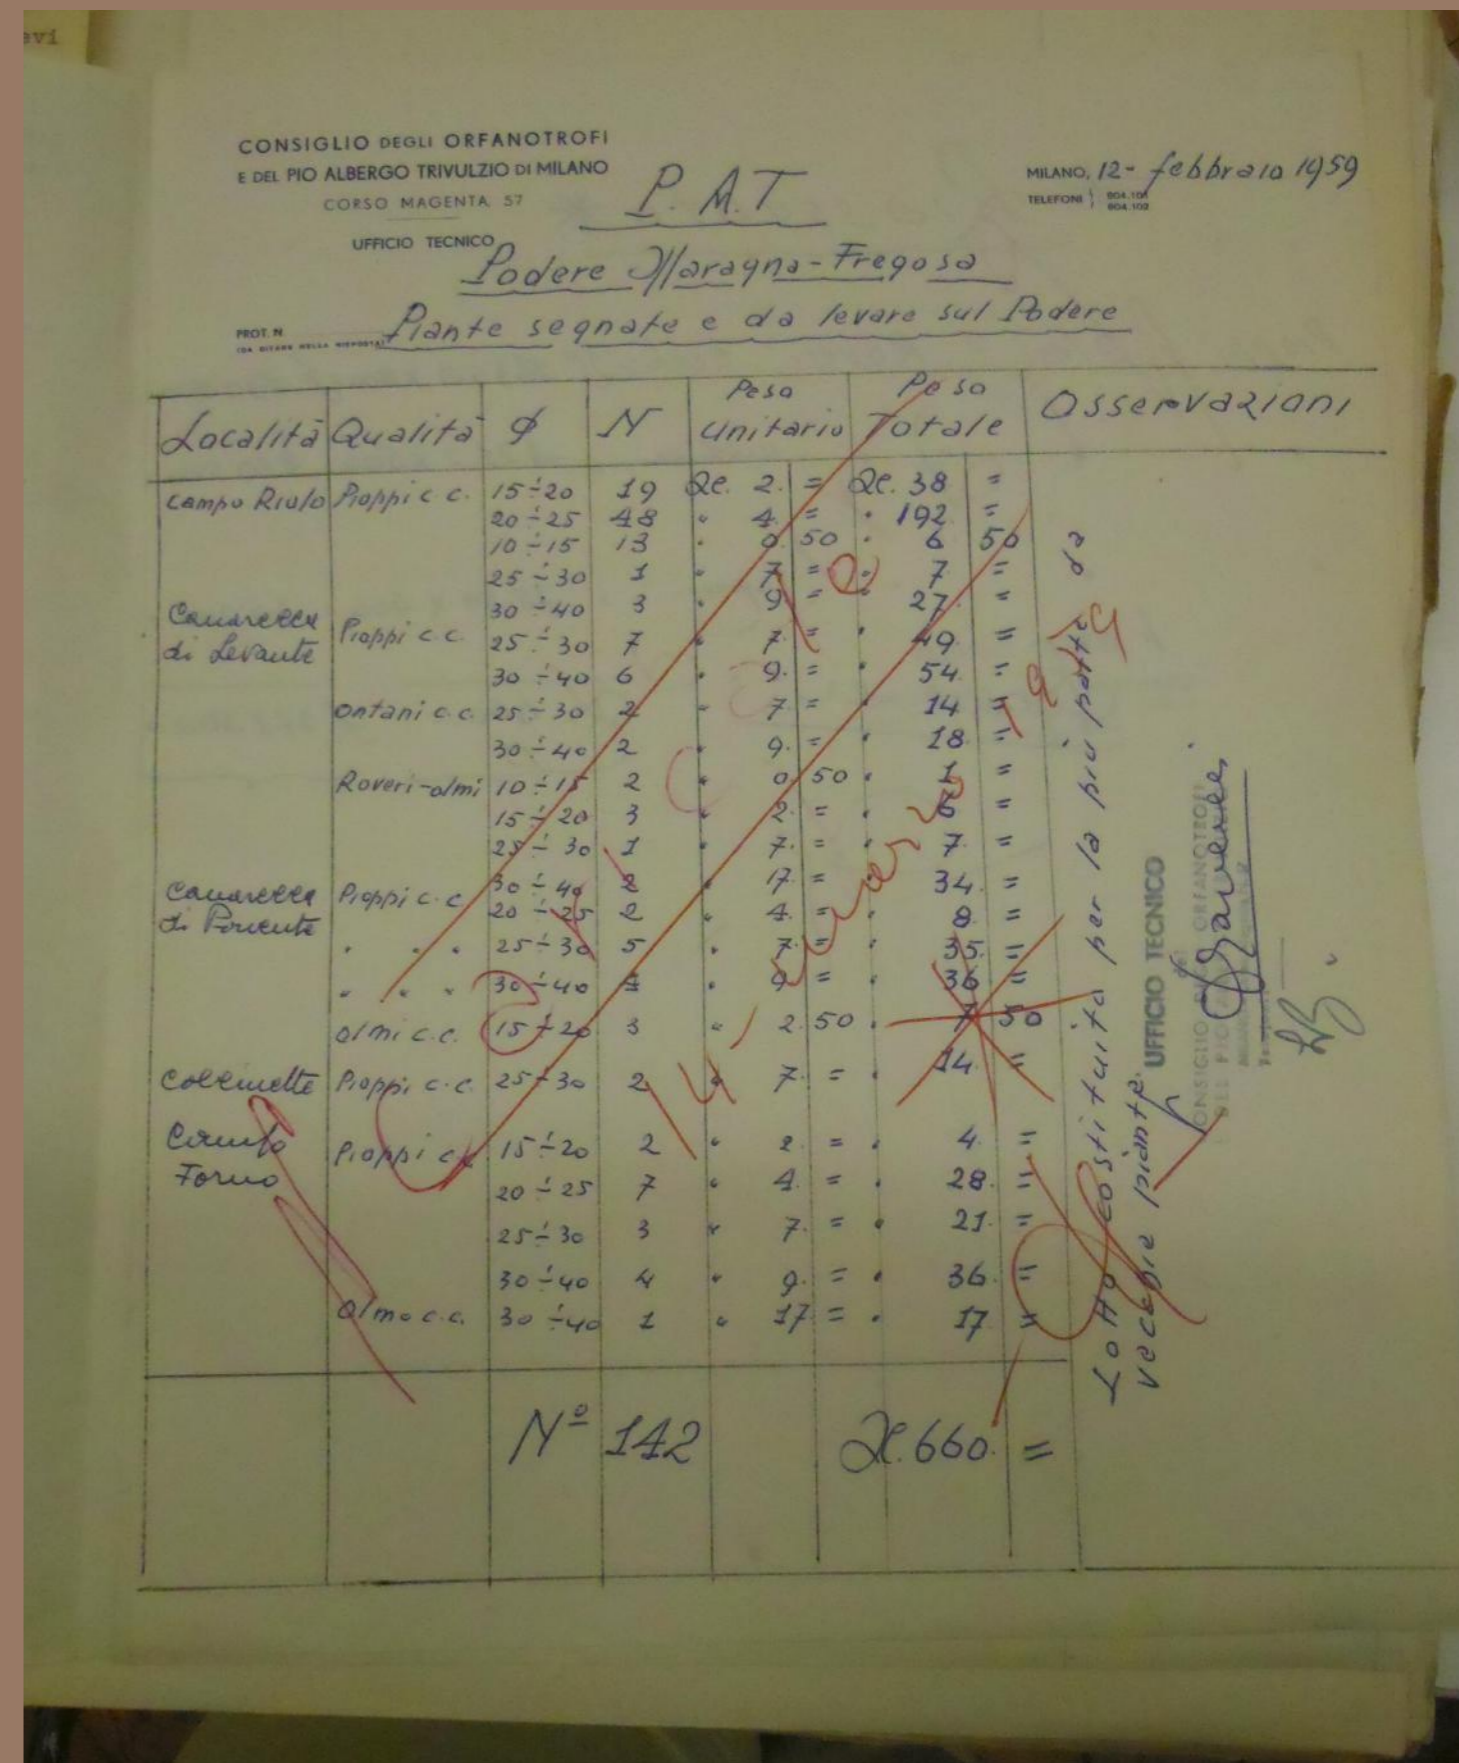 CONSIGLIO DEGLI ORFANOTROFI
E DEL PIO ALBERGO TRIVULZIO DI MILANO
CORSO MAGENTA 57
UFFICIO TECNICO
MILANO, 12- febbraio 1959
TELEFONI 804.101
804.102
P.A.T
Podere Maragna-Fregosa
PROT. N.
Piante segnate e da levare sul Podere
Località Qualità ϕ N Peso Unitario Peso Totale Osservazioni
Campo Riulo Pioppi c.c. 15÷20 19 Ql. 2. = Ql. 38 =
20÷25 48 " 4. = " 192. =
10÷15 13 " 0. 50 " 6 50
25÷30 1 " 7. = " 7. =
30÷40 3 " 9. = " 27. =
di Levante Pioppi c.c. 25÷30 7 " 7. = " 49. =
30÷40 6 " 9. = " 54. =
Ontani c.c. 25÷30 2 " 7. = " 14 =
30÷40 2 " 9. = " 18. =
Roveri-olmi 10÷15 2 " 0 50 " 1 =
15÷20 3 " 2. = " 6 =
25÷30 1 " 7. = " 7. =
30÷40 2 " 17. = 34. =
di Ponente Pioppi c.c. 20÷25 2 " 4. = " 8 =
" " " 25÷30 5 " 7. = " 35. =
" " " 30÷40 4 " 9 = " 36 =
olmi c.c. 15÷20 3 " 2. 50 " 7 50
Pioppi c.c. 25÷30 2 " 7. = " 14. =
Campo Forno Pioppi c.c. 15÷20 2 " 2. = " 4. =
20÷25 7 " 4. = " 28. =
25÷30 3 " 7. = " 21. =
30÷40 4 " 9. = " 36. =
Olmo c.c. 30÷40 1 " 17. = " 17 =
Nº 142 Ql. 660. =
Lotto costituito per la più parte da
vecchie piante.
UFFICIO TECNICO
CONSIGLIO ORFANOTROFI
DEL PIO